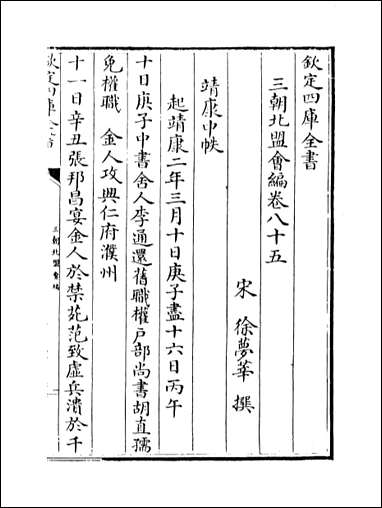 欽定四庫全書
三朝北盟會編卷八十五
宋 徐夢莘 撰
靖康中帙
起靖康二年三月十日庚子盡十六日丙午
十日庚子中書舍人李通還舊職權户部尚書胡直孺
免權職 金人攻興仁府濮州
十一日辛丑張邦昌宴金人於禁苑范致虛兵潰於千
欽定四庫全書
三朝北盟會編